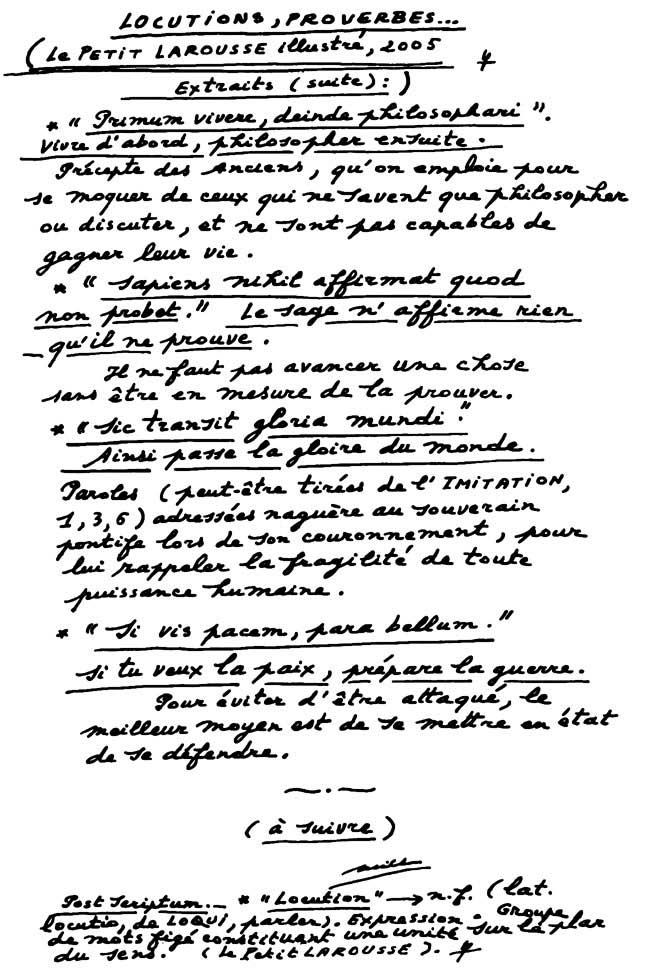 LOCUTIONS, PROVERBES...
(Le PETIT LAROUSSE illustré, 2005
Extraits (suite) : )
* "Primum vivere, deinde philosophari".
Vivre d'abord, philosopher ensuite.
Précepte des Anciens, qu'on emploie pour
se moquer de ceux qui ne savent que philosopher
ou discuter, et ne sont pas capables de
gagner leur vie.
* "Sapiens nihil affirmat quod
non probet." Le sage n'affirme rien
qu'il ne prouve.
Il ne faut pas avancer une chose
sans être en mesure de la prouver.
* "Sic transit gloria mundi."
Ainsi passe la gloire du monde.
Paroles (peut-être tirées de l'IMITATION,
1, 3, 6) adressées naguère au souverain
pontife lors de son couronnement, pour
lui rappeler la fragilité de toute
puissance humaine.
* "Si vis pacem, para bellum."
Si tu veux la paix, prépare la guerre.
Pour éviter d'être attaqué, le
meilleur moyen est de se mettre en état
de se défendre.
(à suivre)
Post Scriptum._ * "Locution" → n.f. (lat.
locutio, de LOQUI, parler). Expression. Groupe
de mots figé constituant une unité sur la plan
du sens. (Le Petit LAROUSSE).